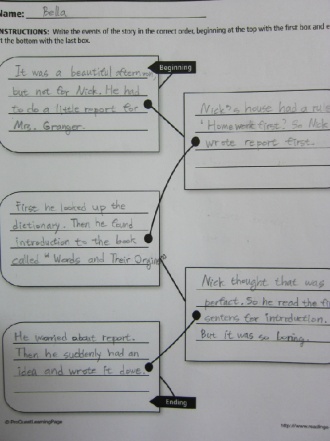 Name: Bella
INSTRUCTIONS: Write the events of the story in the correct order, beginning at the top with the first box and
at the bottom with the last box.
Beginning
It was a beautiful afternoon,
but not for Nick. He had
to do a little report for
Mrs. Granger.
Nick's house had a
"Homework first." So Nick
wrote report first.
First he looked up the
dictionary. Then he found
introduction to the book
called "Words and Their Origins
Nick thought that was
perfact. So he read the
sentens for introduction.
But it was so boring.
He worried about report.
Then he suddenly had an
idea and wrote it down.
Ending
http://www.readinga